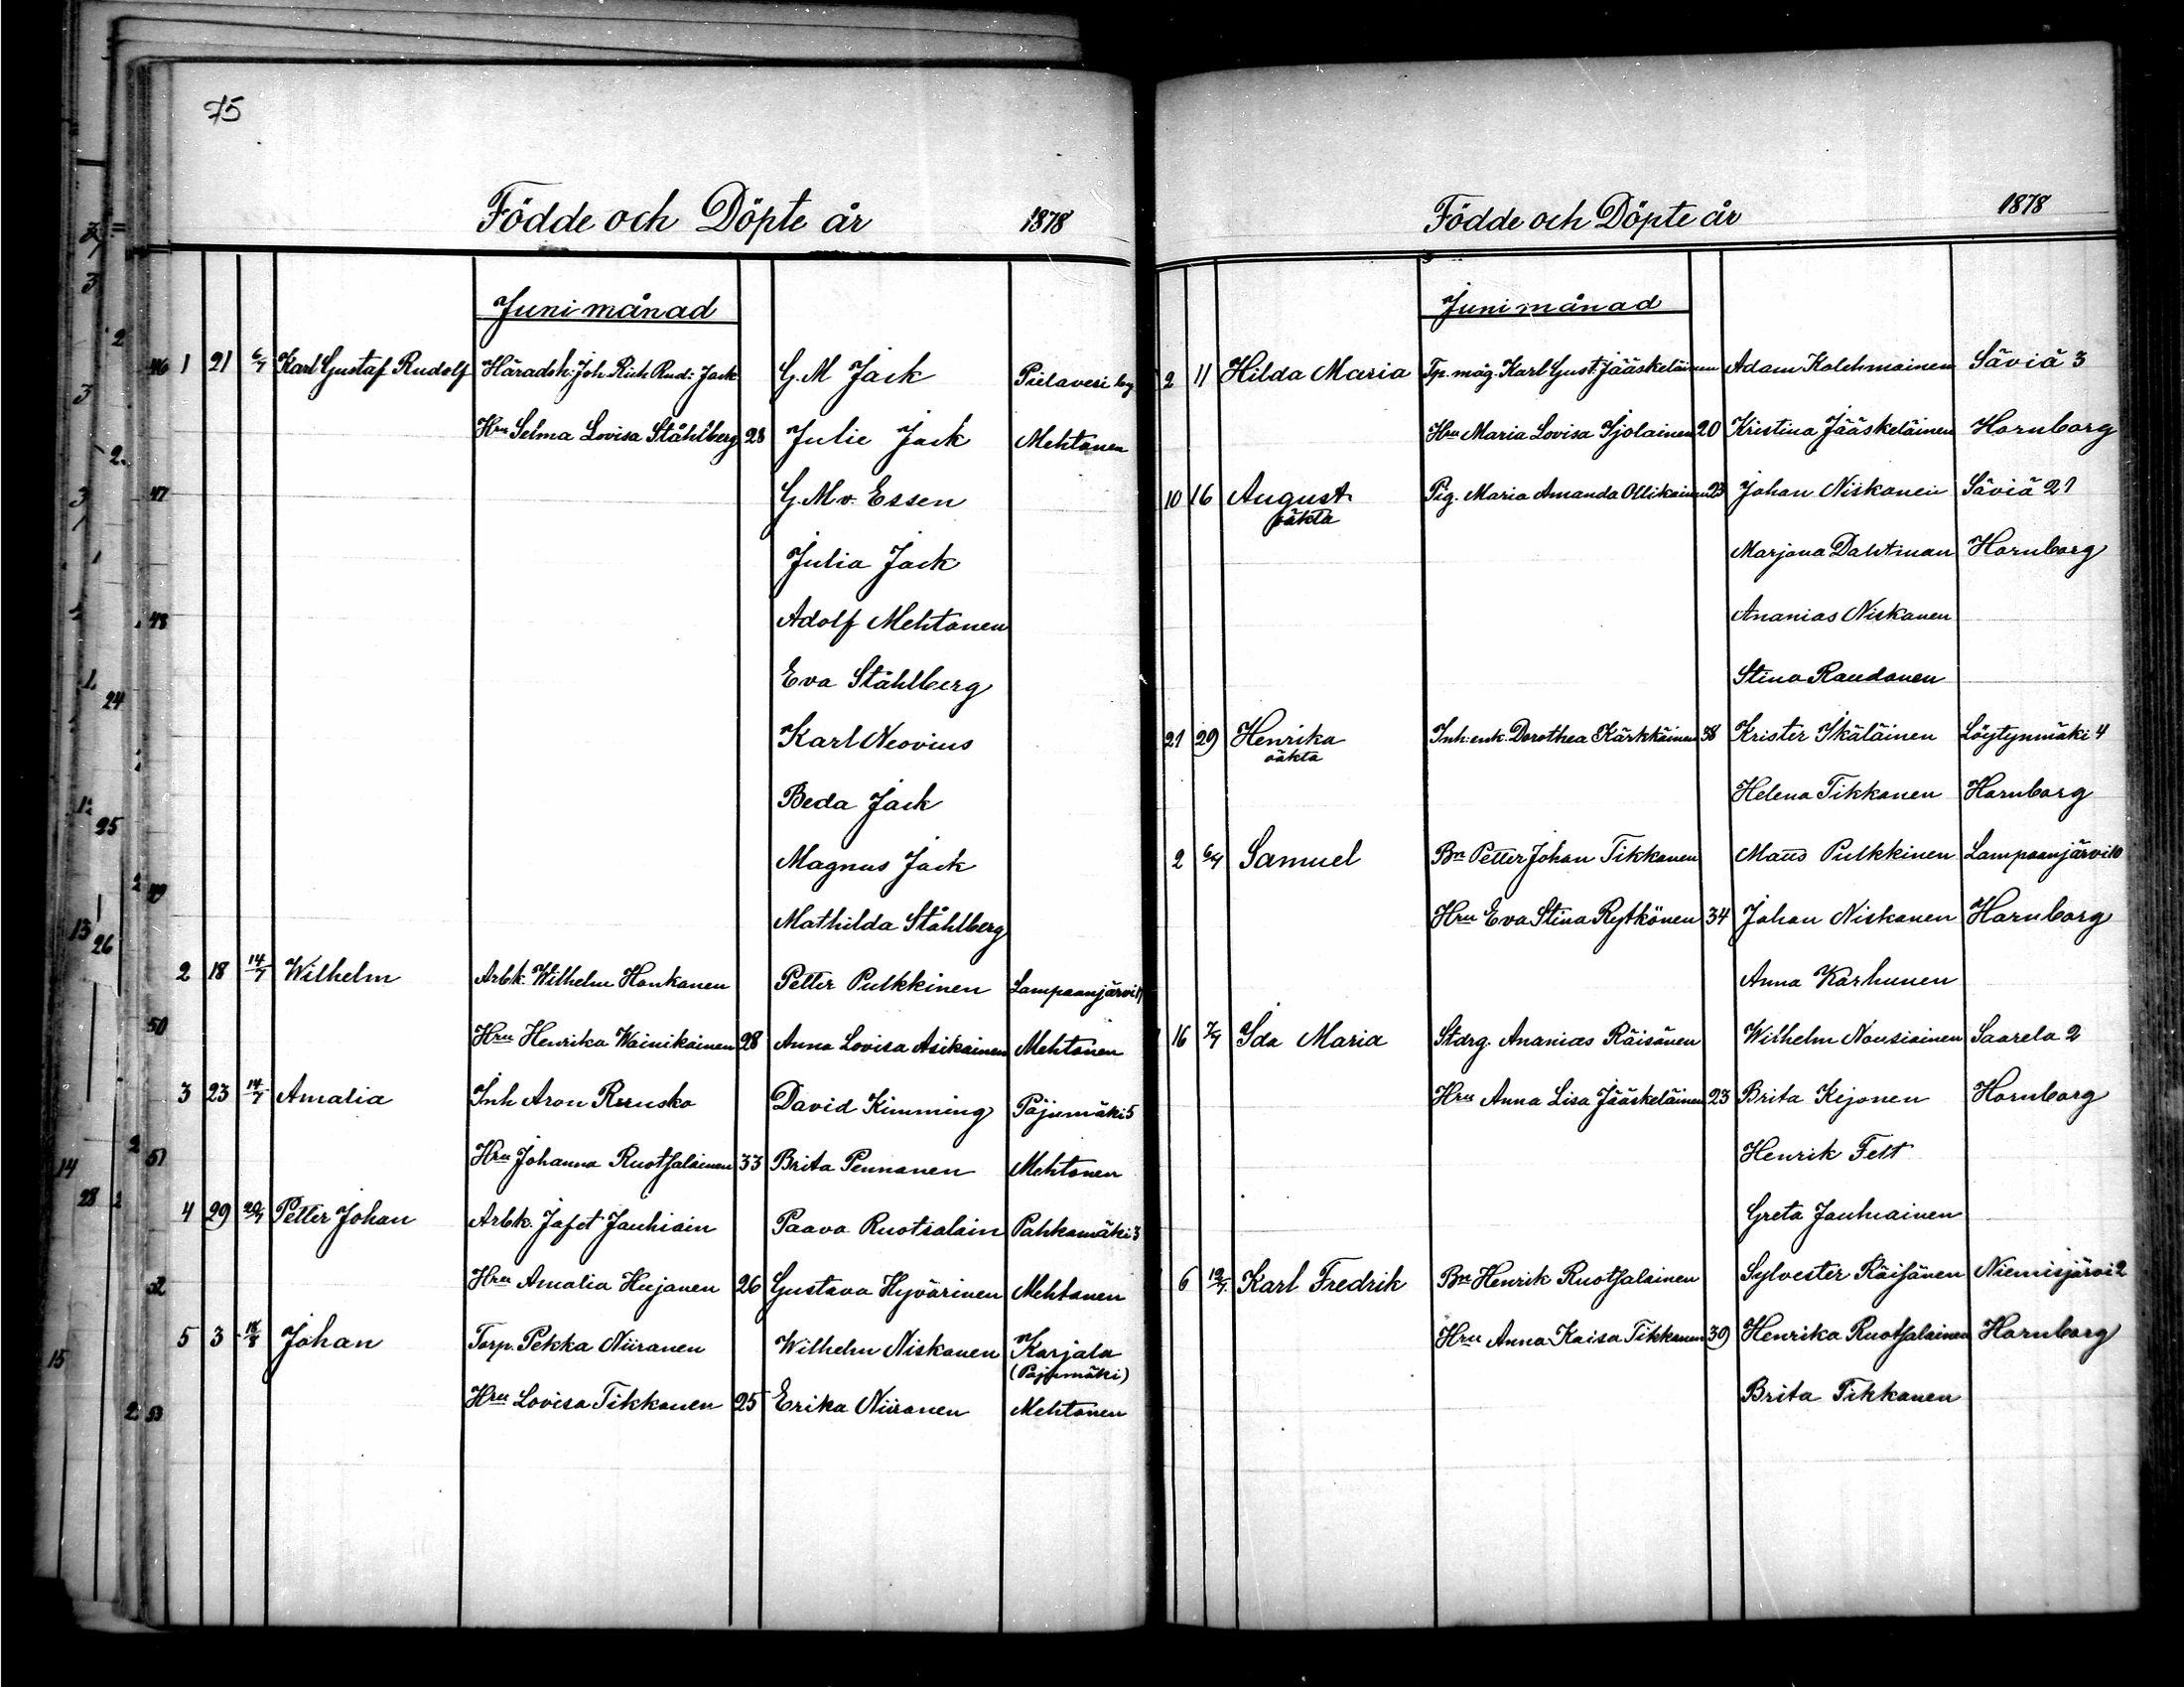 75
Födde och Döpte år 1878
Juni månad
46 1 21 6/7 Karl Gustaf Rudolf Häradsh: Joh. Rich Rud: Jack G. M Jack Pielavesi by
Hru Selma Lovisa Ståhlberg 28 Julie Jack Mehtonen
47 G. M v. Essen
Julia Jack
48 Adolf Mehtonen
Eva Ståhlberg
Karl Neovius
Beda Jack
49 Magnus Jack
Mathilda Ståhlberg
2 18 14/7 Wilhelm Arbk. Wilhelm Honkanen Petter Pulkkinen Lampaanjärvi
50 Hru Henrika Wainikainen 28 Anna Lovisa Asikainen Mehtonen
3 23 14/7 Amalia Inh Aron Ruusko David Kimming Pajumäki 5
51 Hru Johanna Ruotsalainen 33 Brita Pennanen Mehtonen
4 29 20/7 Petter Johan Arbk. Jafet Jauhiain Paavo Ruotsalain Pahkamäki 3
52 Hru Amalia Hujanen 26 Gustava Hyvärinen Mehtonen
5 3 18/8 Johan Torp. Pekka Niiranen Wilhelm Niskanen Karjala
(Pajumäki)
53 Hru Lovisa Tikkanen 25 Erika Niiranen Mehtonen
Födde och Döpte år 1878
Juni månad
2 11 Hilda Maria Tp. måg. Karl Gust. Jääskeläinen Adam Kolehmainen Säviä 3
Hru Maria Lovisa Sjolainen 20 Kristina Jääskeläinen Hornborg
10 16 August Pig. Maria Amanda Ollikainen 23 Johan Niskanen Säviä 21
oäkta
Marjana Dahlman Hornborg
Ananias Niskanen
Stina Raudanen
21 29 Henrika Inh: enk. Dorothea Kärkkäinen 38 Krister Ikäläinen Löytynmäki 4
oäkta
Helena Tikkanen Hornborg
2 6/7 Samuel Bn Petter Johan Tikkanen Matts Pulkkinen Lampaanjärvi 10
Hru Eva Stina Rytkönen 34 Johan Niskanen Hornborg
Anna Karhunen
16 7/7 Ida Maria Stdrg. Ananias Räisänen Wilhelm Nousiainen Saarela 2
Hru Anna Lisa Jääskeläinen 23 Brita Kejonen Hornborg
Henrik Felt
Greta Jauhiainen
6 12/7 Karl Fredrik Bn Henrik Ruotsalainen Sylvester Räisänen Niemisjärvi 2
Hru Anna Kaisa Tikkanen 39 Henrika Ruotsalainen Hornborg
Brita Tikkanen